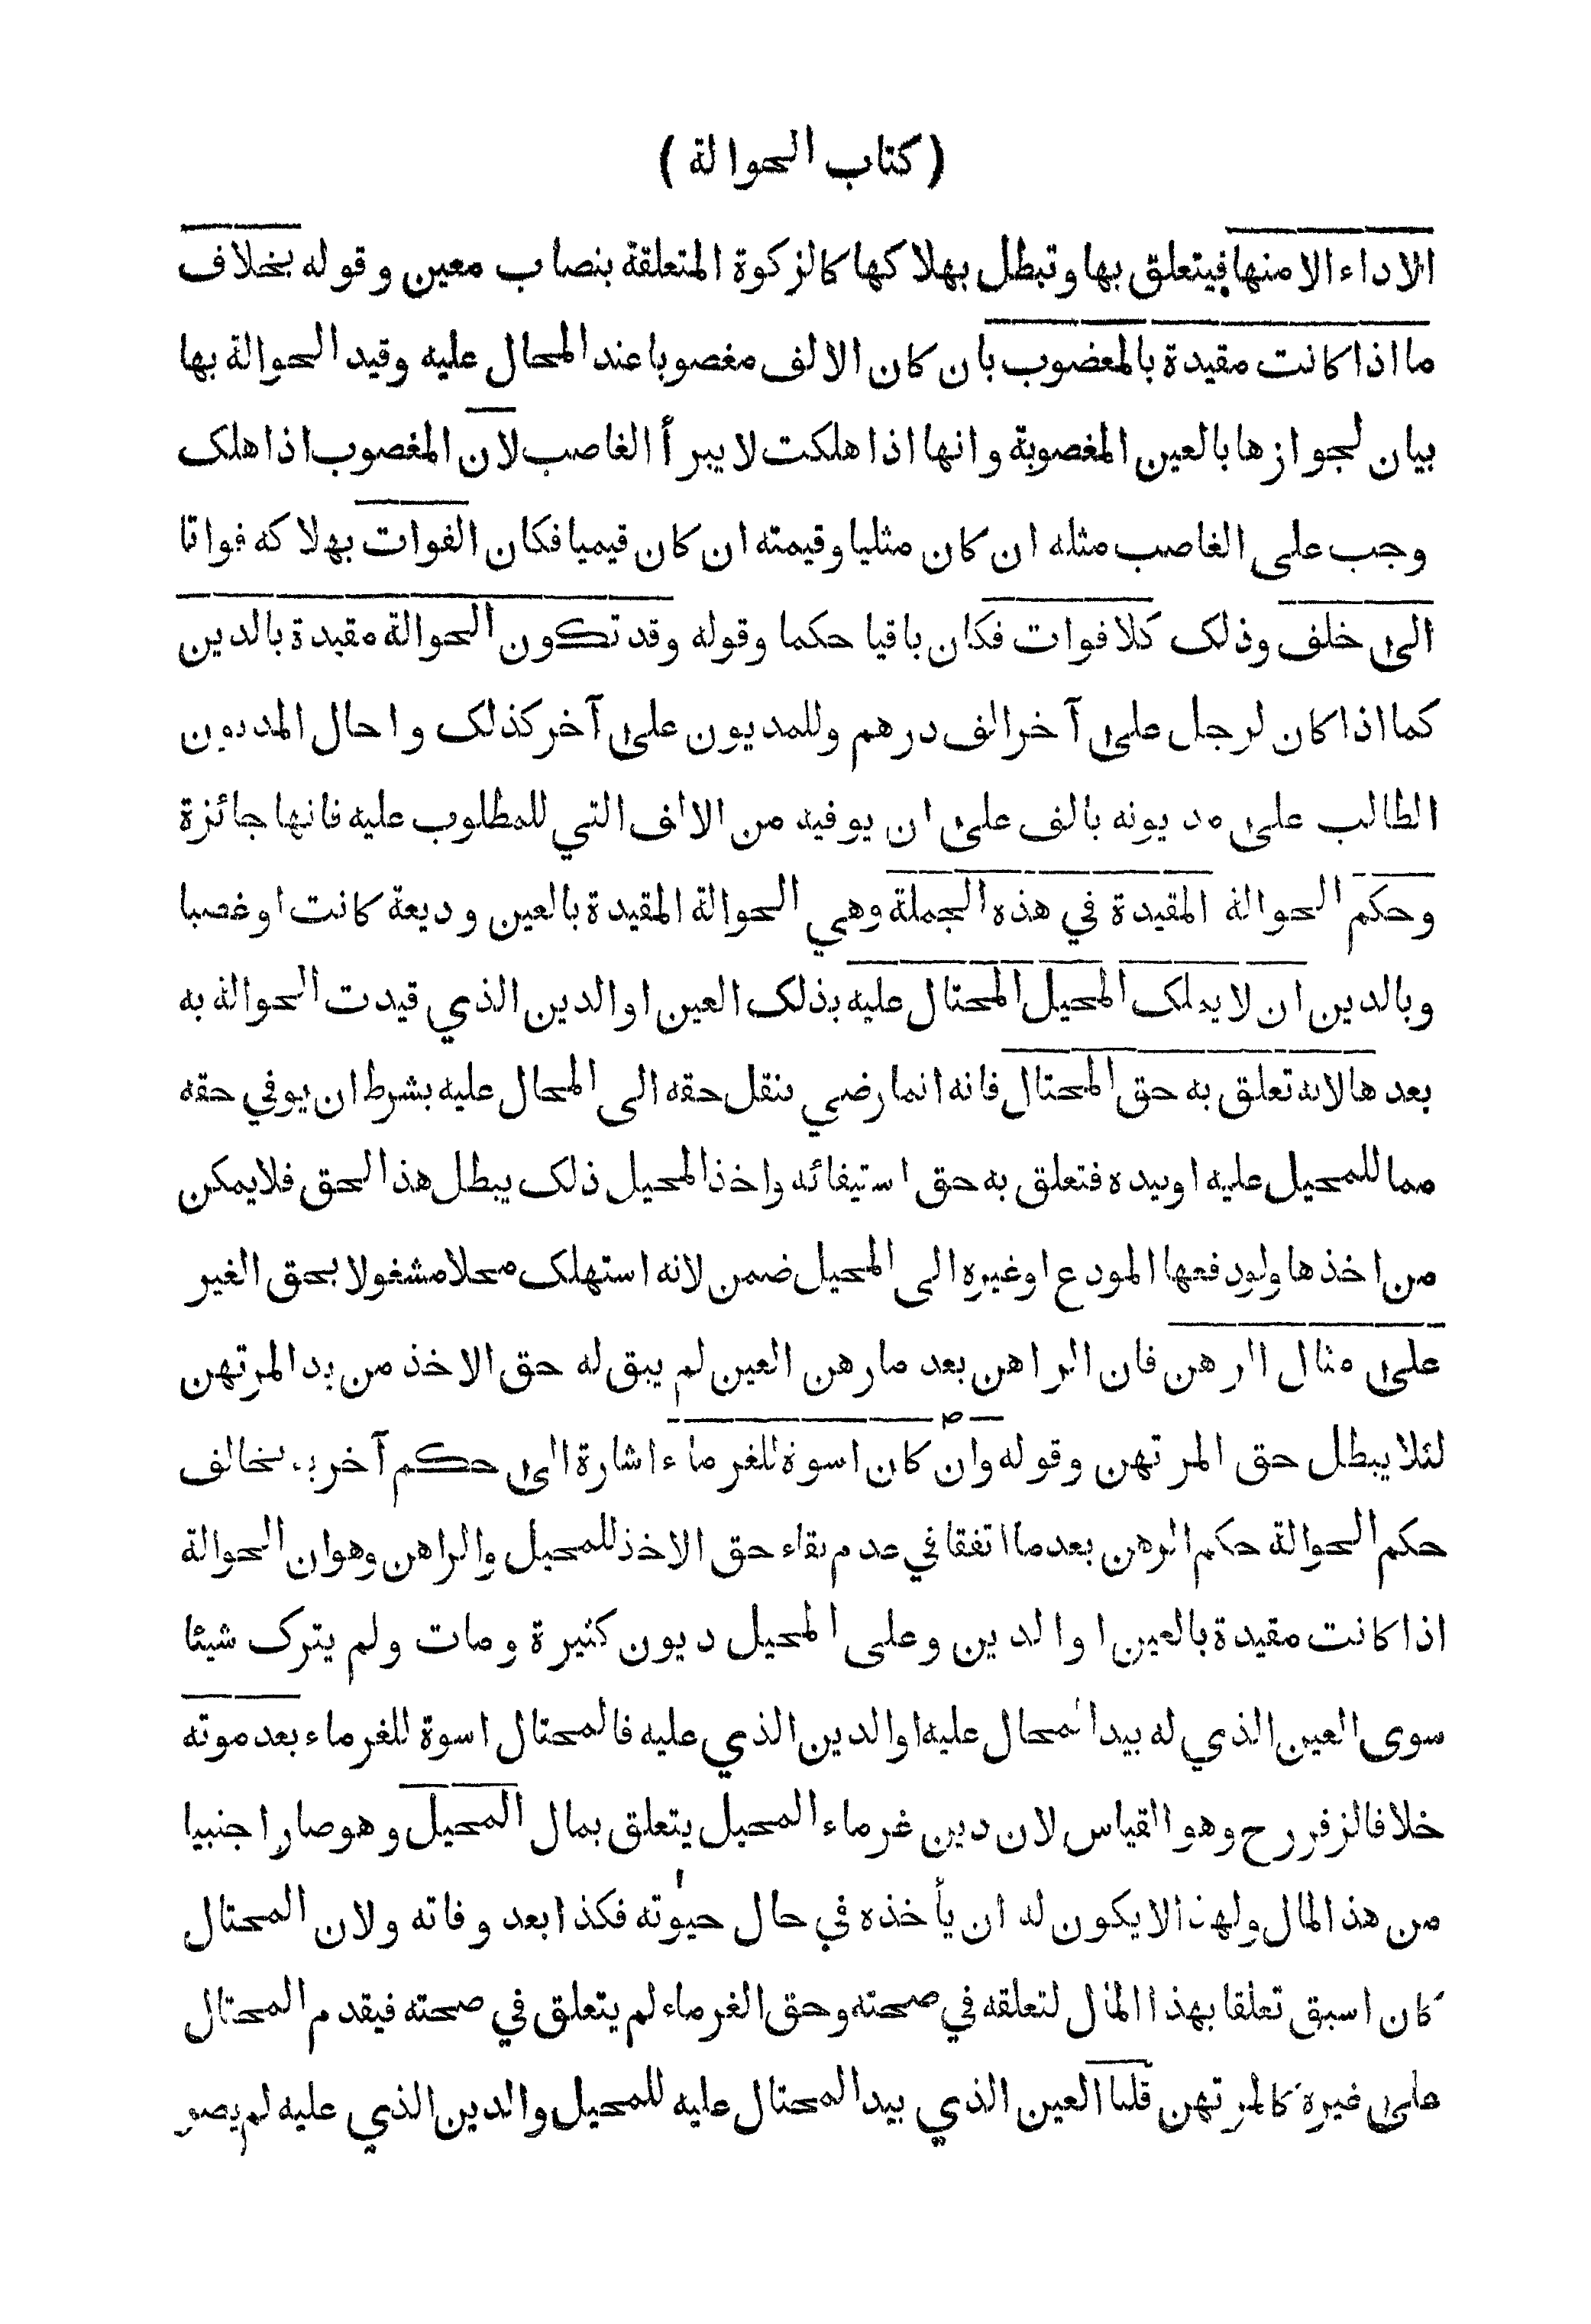 ( كتاب الحوالة )
الاداء الا منها فيتعلق بها وتبطل بهلاكها كالزكوة المتعلقة بنصاب معين وقوله بخلاف
ما اذا كانت مقيدة بالمغضوب بان كان الالف مغصوبا عند المحال عليه وقيد الحوالة بها
بيان لجوازها بالعين المغصوبة وانها اذا هلكت لا يبرأ الغاصب لان المغصوب اذا هلك
وجب على الغاصب مثله ان كان مثليا وقيمته ان كان قيميا فكان الفوات بهلاكه فواتا
الى خلف وذلك كلا فوات فكان باقيا حكما وقوله وقد تكون الحوالة مقيدة بالدين
كما اذا كان لرجل على آخر الف درهم وللمديون على آخر كذلك واحال المديون
الطالب على مديونه بالف على ان يوفيه من الالف التي للمطلوب عليه فانها جائزة
وحكم الحوالة المقيدة في هذه الجملة وهي الحوالة المقيدة بالعين وديعة كانت او غصبا
وبالدين ان لا يملك المحيل المحتال عليه بذلك العين او الدين الذي قيدت الحوالة به
بعدها لانه تعلق به حق المحتال فانه انما رضي بنقل حقه الى المحال عليه بشرط ان يوفي حقه
مما للمحيل عليه او بيده فتعلق به حق استيفائه واخذ المحيل ذلك يبطل هذا الحق فلا يمكن
من اخذها ولو دفعها المودع او غيره الى المحيل ضمن لانه استهلك محلا مشغولا بحق الغير
على مثال الرهن فان الراهن بعد ما رهن العين لم يبق له حق الاخذ من يد المرتهن
لئلا يبطل حق المرتهن وقوله وان كان اسوة للغرماء اشارة الى حكم آخر به يخالف
حكم الحوالة حكم الرهن بعد ما اتفقا في عدم بقاء حق الاخذ للمحيل والراهن وهو ان الحوالة
اذا كانت مقيدة بالعين او الدين وعلى المحيل ديون كثيرة ومات ولم يترك شيئا
سوى العين الذي له بيد المحال عليه او الدين الذي عليه فالمحتال اسوة للغرماء بعد موته
خلافا لزفر رح وهو القياس لان دين غرماء المحيل يتعلق بمال المحيل وهو صار اجنبيا
من هذا المال ولهذا لا يكون له ان يأخذه في حال حيوته فكذا بعد وفاته ولان المحتال
كان اسبق تعلقا بهذا المال لتعلقه في صحته وحق الغرماء لم يتعلق في صحته فيقدم المحتال
على غيره كالمرتهن قلنا العين الذي بيد المحتال عليه للمحيل والدين الذي عليه لم يصر